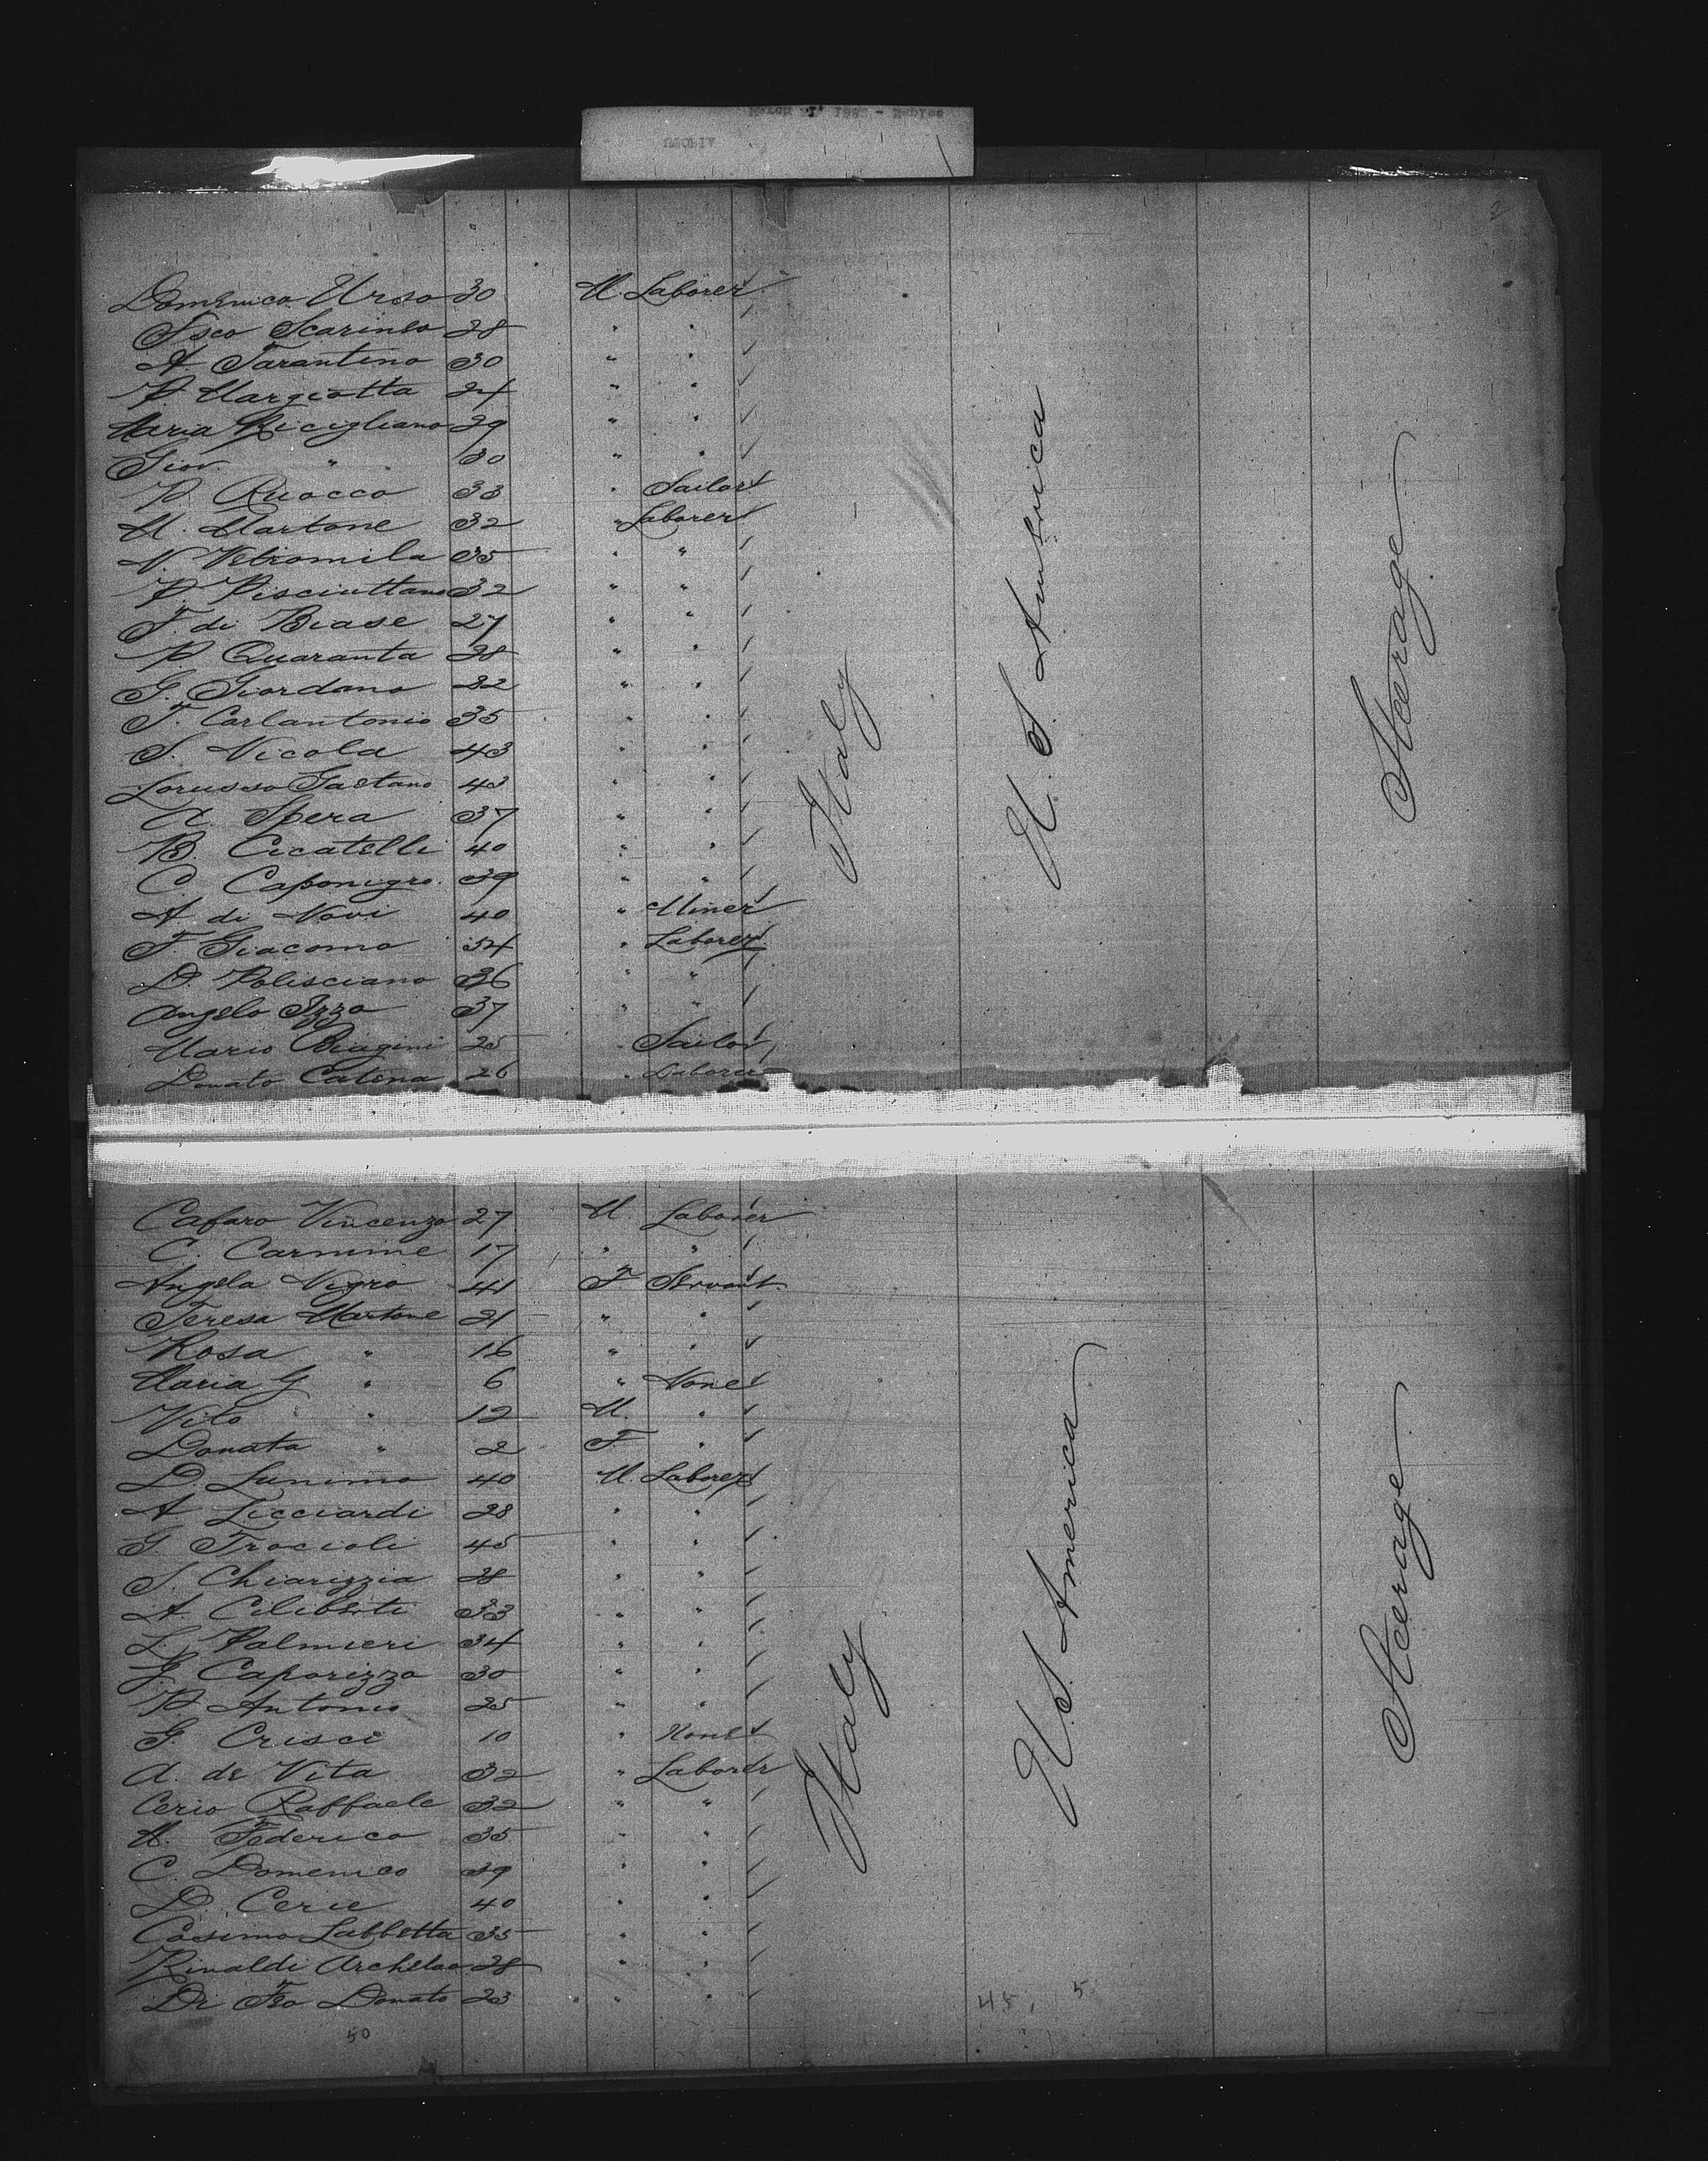 March 188 - Naples
2
Domenico Urso 30 M. Laborer
Fsco Scarinso 28 " "
A. Tarantino 30 " "
P. Margiotta 24 " "
Maria Ricigliano 29 " "
Giov. " 30 " "
P. Ruocco 33 " Sailor
M. Martone 32 " Laborer
N. Vetromila 35 " "
P. Pisciuttano 32 " "
F. di Biase 27 " "
P. Quaranta 28 " "
G. Giordano 22 " "
F. Carlantonio 35 " "
S. Nicola 43 " "
Lorusso Gaetano 43 " "
A. Spera 37 " "
B. Cicatelli 40 " "
C. Caponigro 39 " "
A. di Novi 40 " Miner
F. Giacomo 34 " Laborer
D. Polisciano 36 " "
Angelo Izzo 37 " "
Mario Biagini 25 " Sailor
Donato Catena 26 " Laborer
Italy
U. S. America
Steerage
Cafaro Vincenzo 27 M. Laborer
C. Carmine 17 " "
Angela Nigro 41 F Servant
Teresa Martone 21 " "
Rosa " 16 " "
Maria G " 6 " None
Vito " 12 M. "
Donata " 2 F "
D. Lunimo 40 M. Laborer
A Licciardi 28 " "
G. Trocioli 45 " "
S. Chiarizzia 28 " "
A. Ciliberti 33 " "
L. Palmieri 34 " "
G. Caporizzo 30 " "
P. Antonio 25 " "
G. Crisci 10 " None
A. de Vita 32 " Laborer
Cerio Raffaele 32 " "
M. Federico 35 " "
C. Domenico 39 " "
D. Cerie 40 " "
Cosimo Labbetta 35 " "
Rinaldi Archelao 28 " "
Di Feo Donato 23 " "
Italy
U.S. America
Steerage
45, 5
50